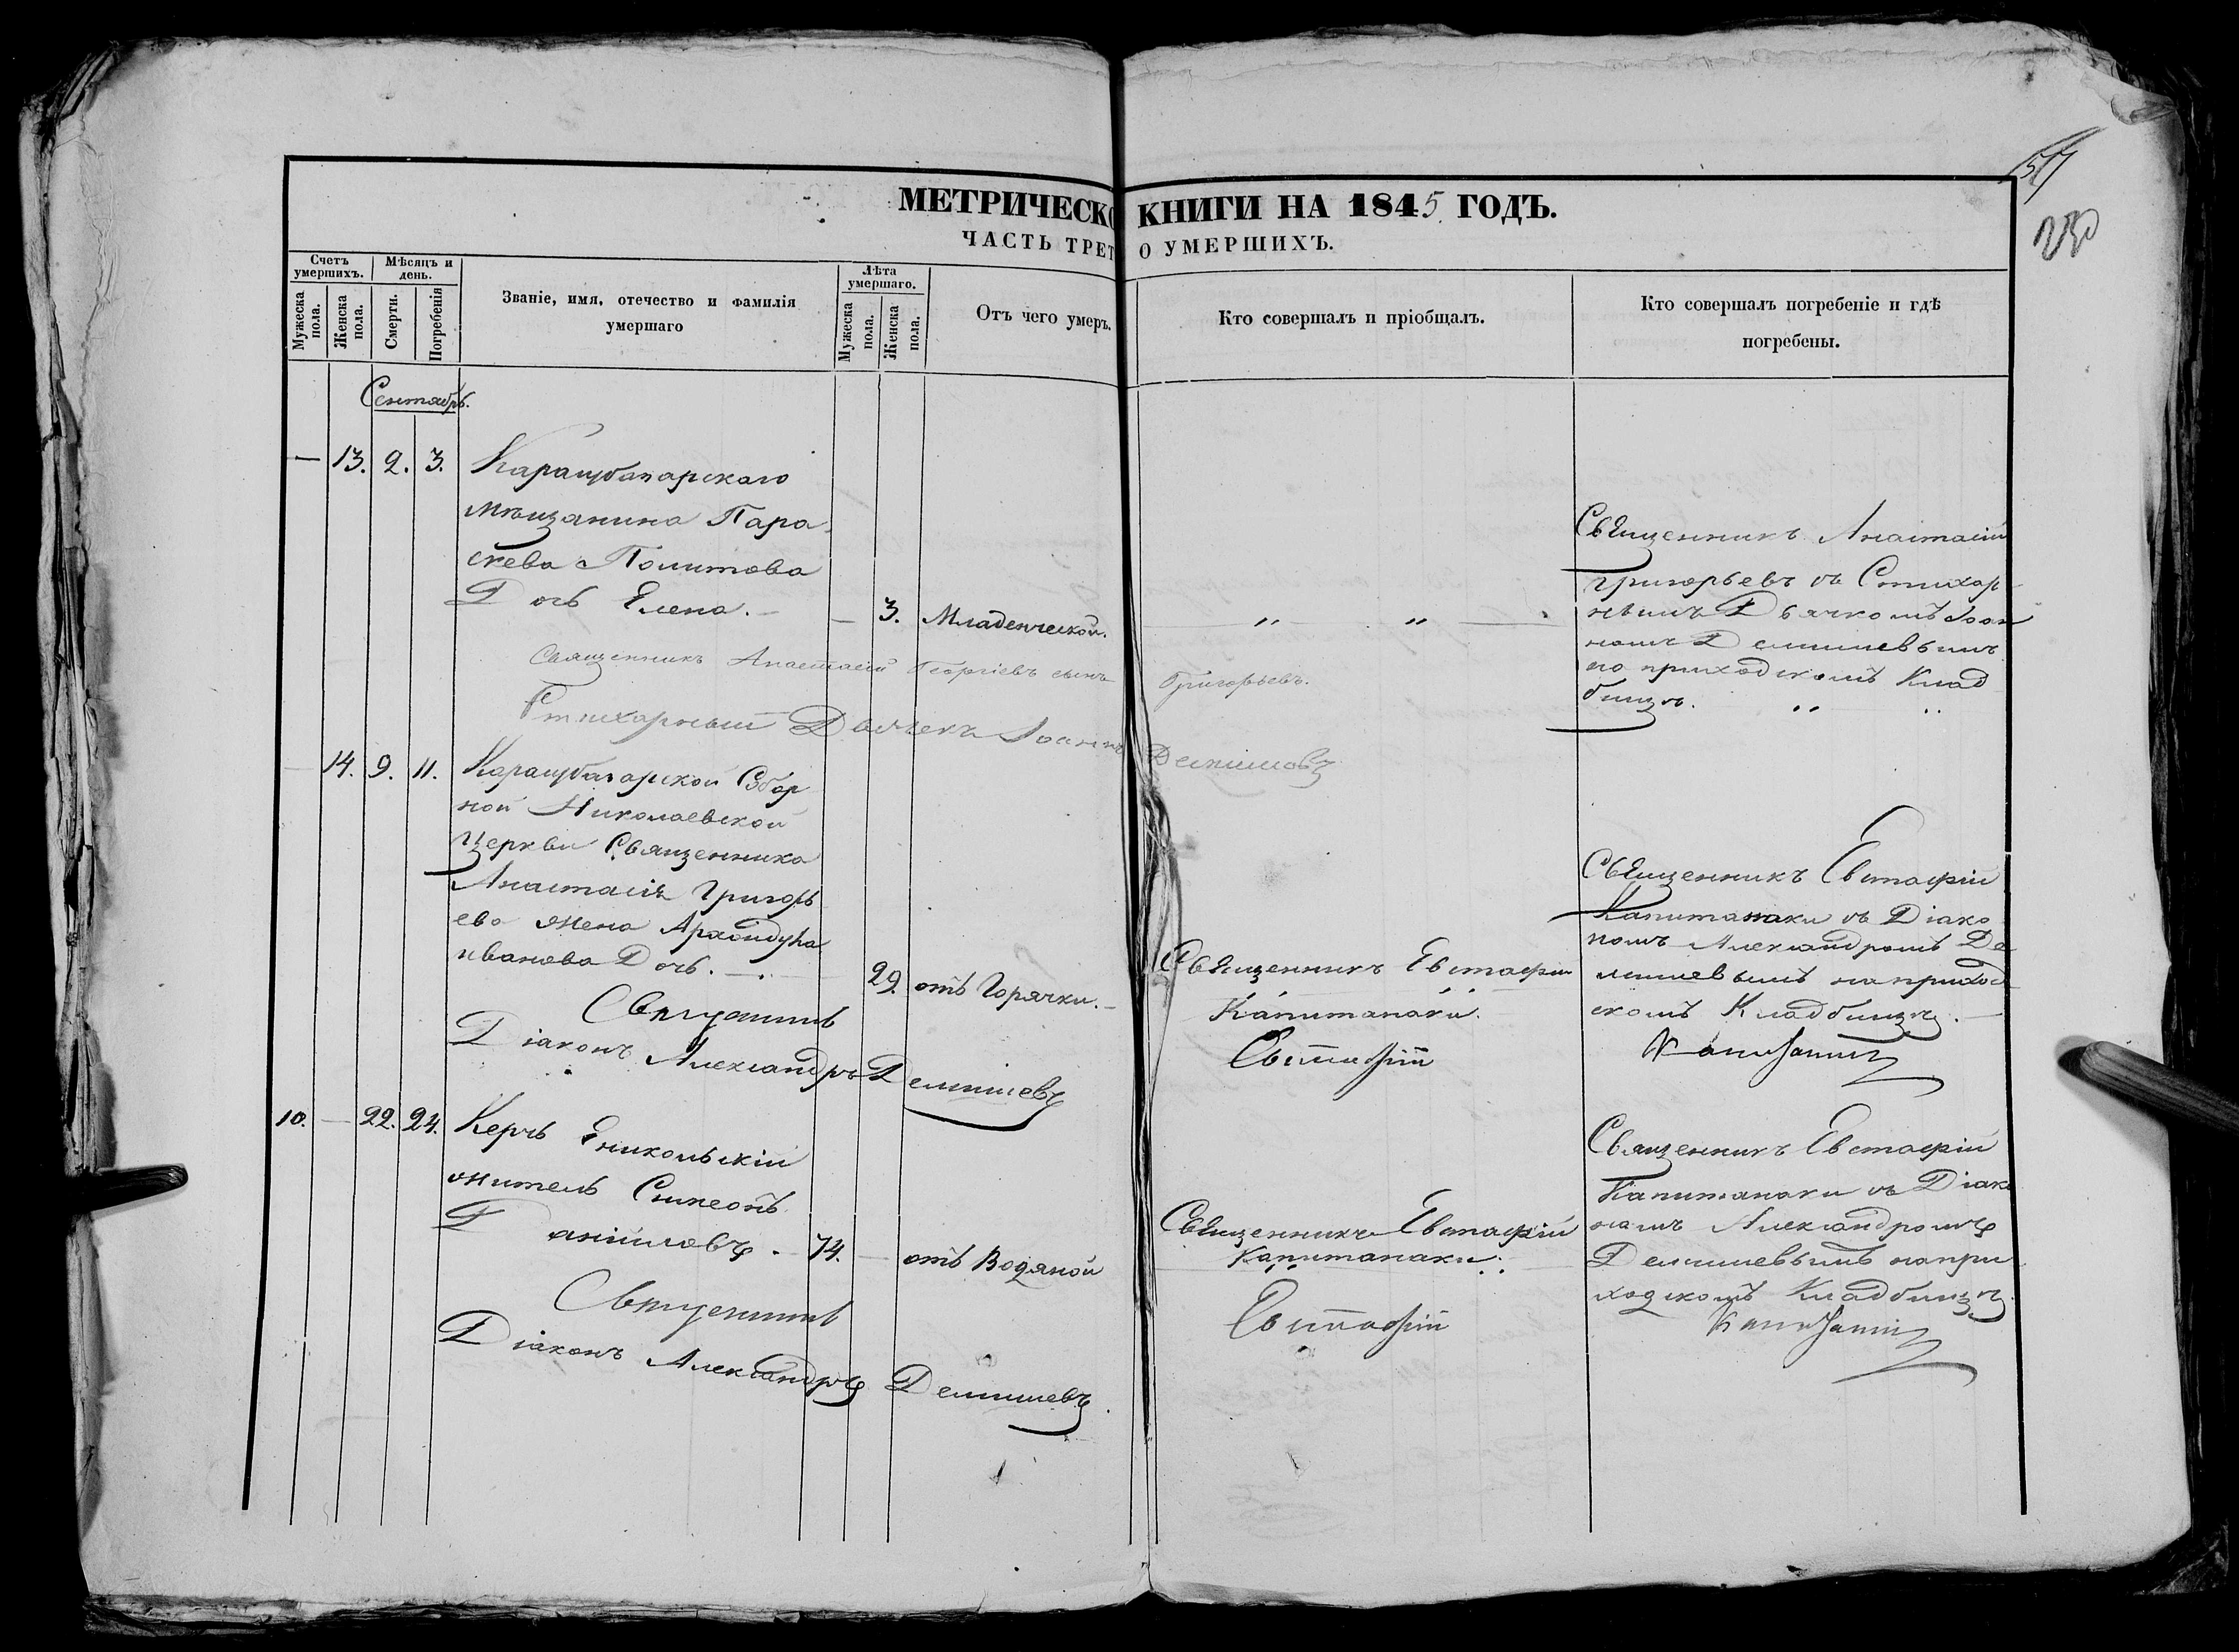 57
МЕТРИЧЕСКО КНИГИ НА 1845 ГОДЪ.
ЧАСТЬ ТРЕТ О УМЕРШИХЪ.
Счетъ умершихъ.
Мужеска пола.
Женска пола.
Мѣсяцъ и день.
Смерти.
Погребенія
Званіе, имя, отечество и фамилія
умершаго
Лѣта умершаго.
Мужеска пола.
Женска пола.
Отъ чего умеръ.
Кто совершалъ и пріобщалъ.
Кто совершалъ погребеніе и гдѣ
погребены.
Сентябрь.
— 13. 2. 3.
Карасубазарскаго
мѣщанина Пара
скева
Дочь Елена. —
— 3. Младенческой.
„ „
Священникъ Анастасій
Григорьевъ съ Стихар
нымъ Дьячкомъ Іоан
номъ
приходскомъ Клад
бищѣ. „ „
Священникъ Анастасій Георгіевъ сынъ Григорьевъ.
Стихарный Дьячекъ Іоаннъ
14. 9. 11.
Карасубазарской Собор
ной Николаевской
Церкви Священника
Анастасія Григорь
ева жена
иванова Дочь. —
29. отъ Горячки. —
Священникъ Евстафій
Капитанаки.
Священникъ Евстафій
Капитанаки съ Діако
номъ Александромъ
на приход
скомъ Кладбищѣ. —
Священникъ
Евстафій
Діаконъ Александръ
10. — 22. 24.
Керчь Еникольскій
житель Симеонъ
Даніиловъ. — 74. — отъ Водяной
Священникъ Евстафій
Капитанаки.
Священникъ Евстафій
Капитанаки съ Діако
номъ Александромъ
на при
ходскомъ Кладбищѣ
Священникъ
Евстафій
Діаконъ Александръ